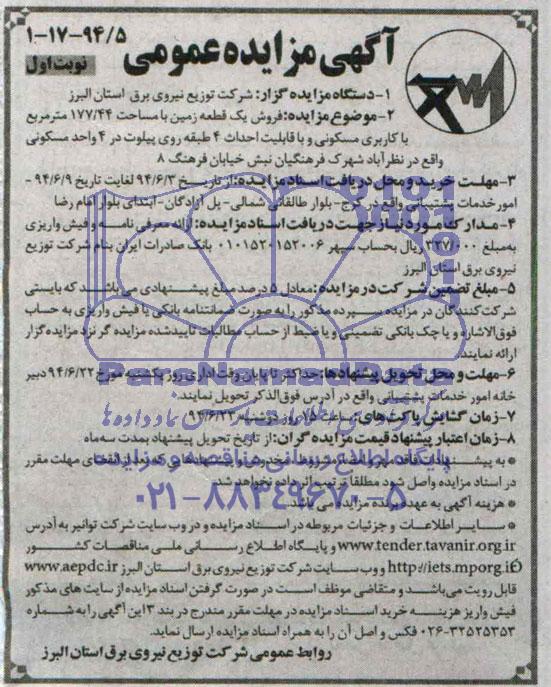 ۱-۱۷-۹۴/۵
آگهی مزایده عمومی
نوبت اول
۱-دستگاه مزایده گزار: شرکت توزیع نیروی برق استان البرز
۲-موضوع مزایده:فروش یک قطعه زمین با مساحت ۱۷۷/۴۴ مترمربع
با کاربری مسکونی و با قابلیت احداث ۴ طبقه روی پیلوت در ۴ واحد مسکونی
واقع در نظرآباد شهرک فرهنگیان نبش خیابان فرهنگ ۸
۳-مهلت خرید و محل دریافت اسناد مزایده:از تاریخ ۹۴/۶/۳ لغایت تاریخ ۹۴/۶/۹-
امور خدمات پشتیبانی واقع در کرج-بلوار طالقانی شمالی-پل آزادگان-ابتدای بلوار امام رضا
۴-مدارک مورد نیاز جهت دریافت اسناد مزایده:ارائه معرفی نامه و فیش واریزی
به مبلغ ۳۲۷/۰۰۰ ریال بحساب سپهر ۰۱۰۱۵۲۰۱۵۲۰۰۶ بانک صادرات ایران بنام شرکت توزیع
نیروی برق استان البرز
۵-مبلغ تضمین شرکت در مزایده:معادل ۵ درصد مبلغ پیشنهادی می باشد که بایستی
شرکت کنندگان در مزایده سپرده مذکور را به صورت ضمانتنامه بانکی یا فیش واریزی به حساب
فوق الاشاره و یا چک بانکی تضمینی و یا ضبط از حساب مطالبات تایید شده مزایده گر نزد مزایده گزار
ارائه نمایند.
۶-مهلت و محل تحویل پیشنهادها:حداکثر تا پایان وقت اداری روز یکشنبه مورخ ۹۴/۶/۲۲ دبیر
خانه امور خدمات پشتیبانی واقع در آدرس فوق الذکر تحویل نمایند.
۷-زمان گشایش پاکت های: ساعت ۱۵ روز دوشنبه ۹۴/۶/۲۳
۸-زمان اعتبار پیشنهاد قیمت مزایده گران:از تاریخ تحویل پیشنهاد بمدت سه ماه
* به پیشنهادات فاقد مهر، امضا، مشروط، مخدوش و پیشنهادهایی که بعد از انقضای مهلت مقرر
در اسناد مزایده واصل شود مطلقا ترتیب اثر داده نخواهد شد.
* هزینه آگهی به عهده برنده مزایده می باشد.
* سایر اطلاعات و جزئیات مربوطه در اسناد مزایده و در وب سایت شرکت توانیر به آدرس
www.tender.tavanir.org.ir و پایگاه اطلاع رسانی ملی مناقصات کشور
http://iets.mporg.ir و وب سایت شرکت توزیع نیروی برق استان البرز www.aepdc.ir
قابل رویت می باشد و متقاضی موظف است در صورت گرفتن اسناد مزایده از سایت های مذکور
فیش واریز هزینه خرید اسناد مزایده در مهلت مقرر مندرج در بند ۳ این آگهی را به شماره
۰۲۶-۳۲۵۲۵۳۵۳ فکس و اصل آن را به همراه اسناد مزایده ارسال نماید.
روابط عمومی شرکت توزیع نیروی برق استان البرز
ParsNamadData
پایگاه اطلاع رسانی مناقصه و مزایده
۰۲۱-۸۸۳۴۹۶۷۰-۵